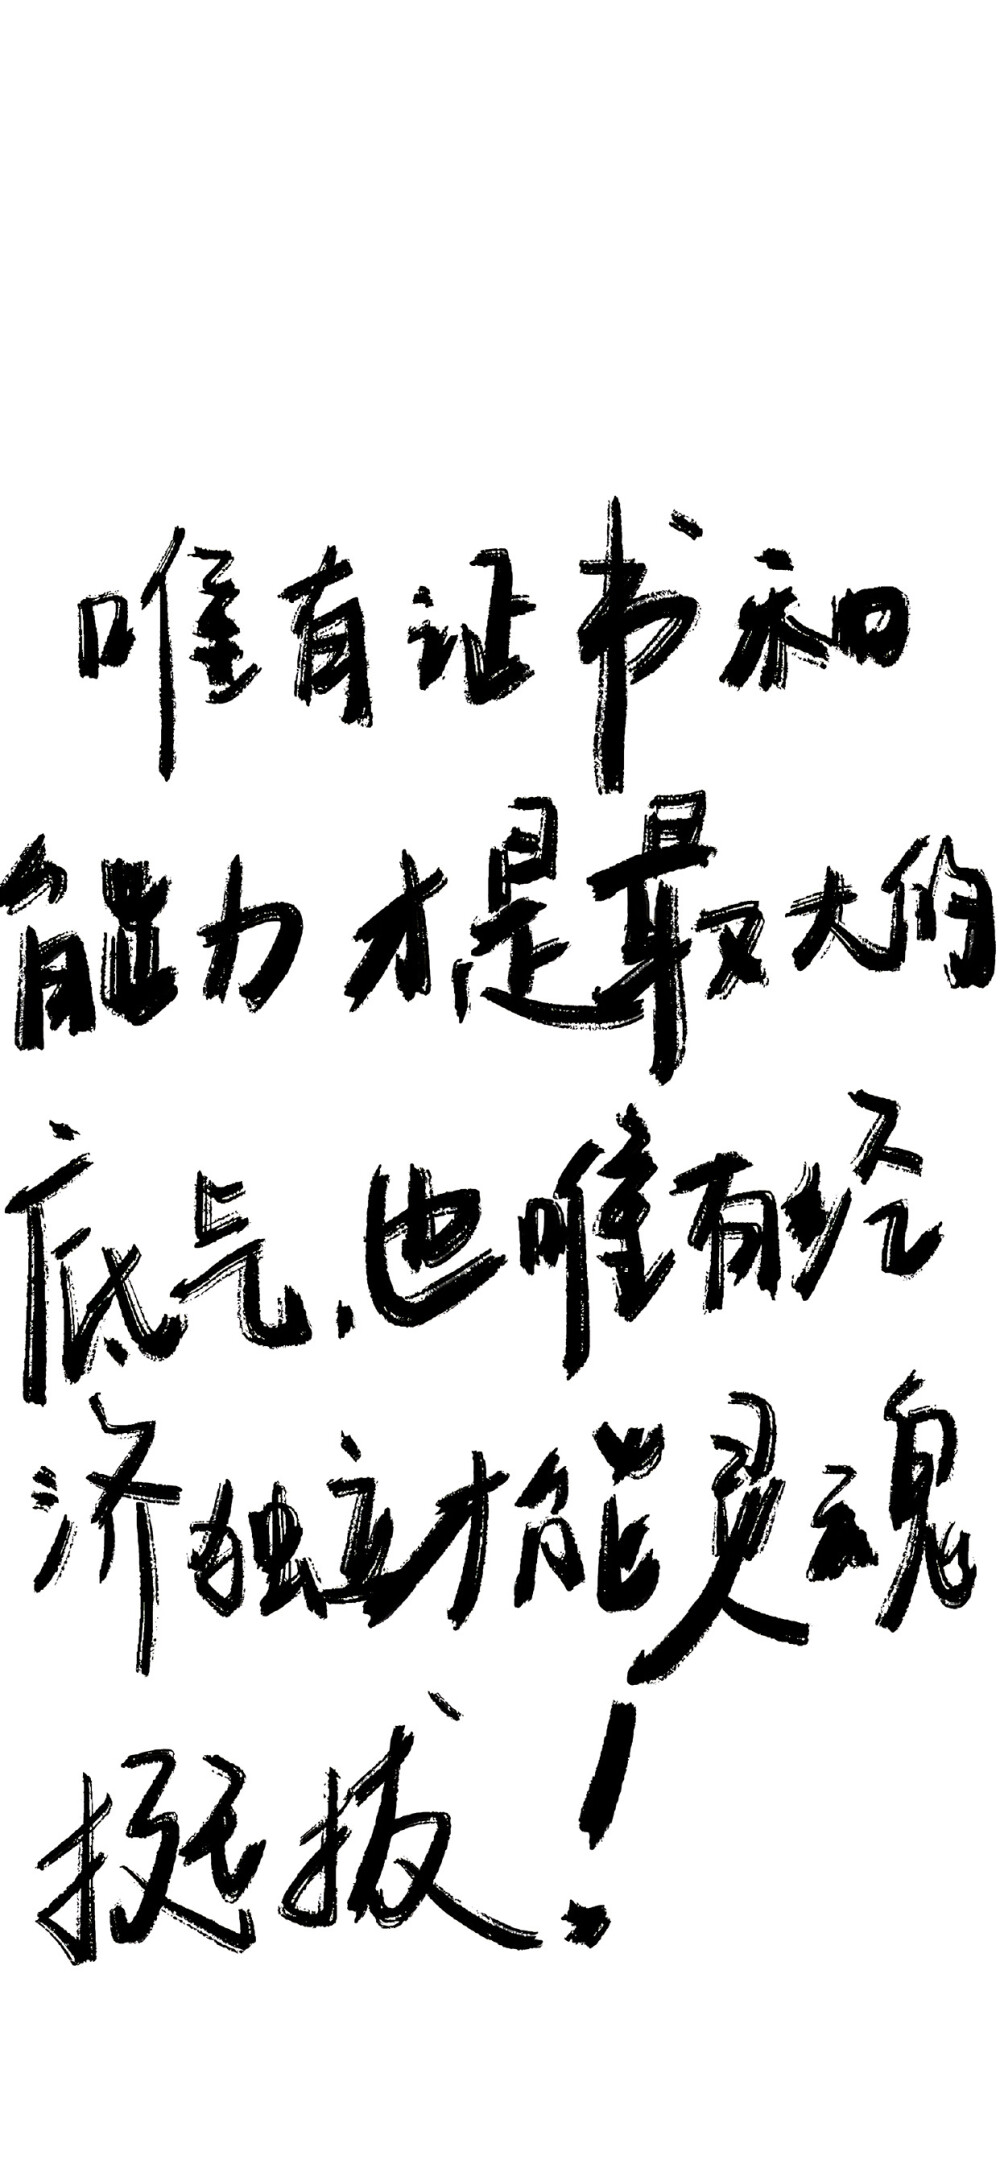 唯有证书和
能力才是最大的
底气,也唯有经
济独立才能灵魂
挺拔!